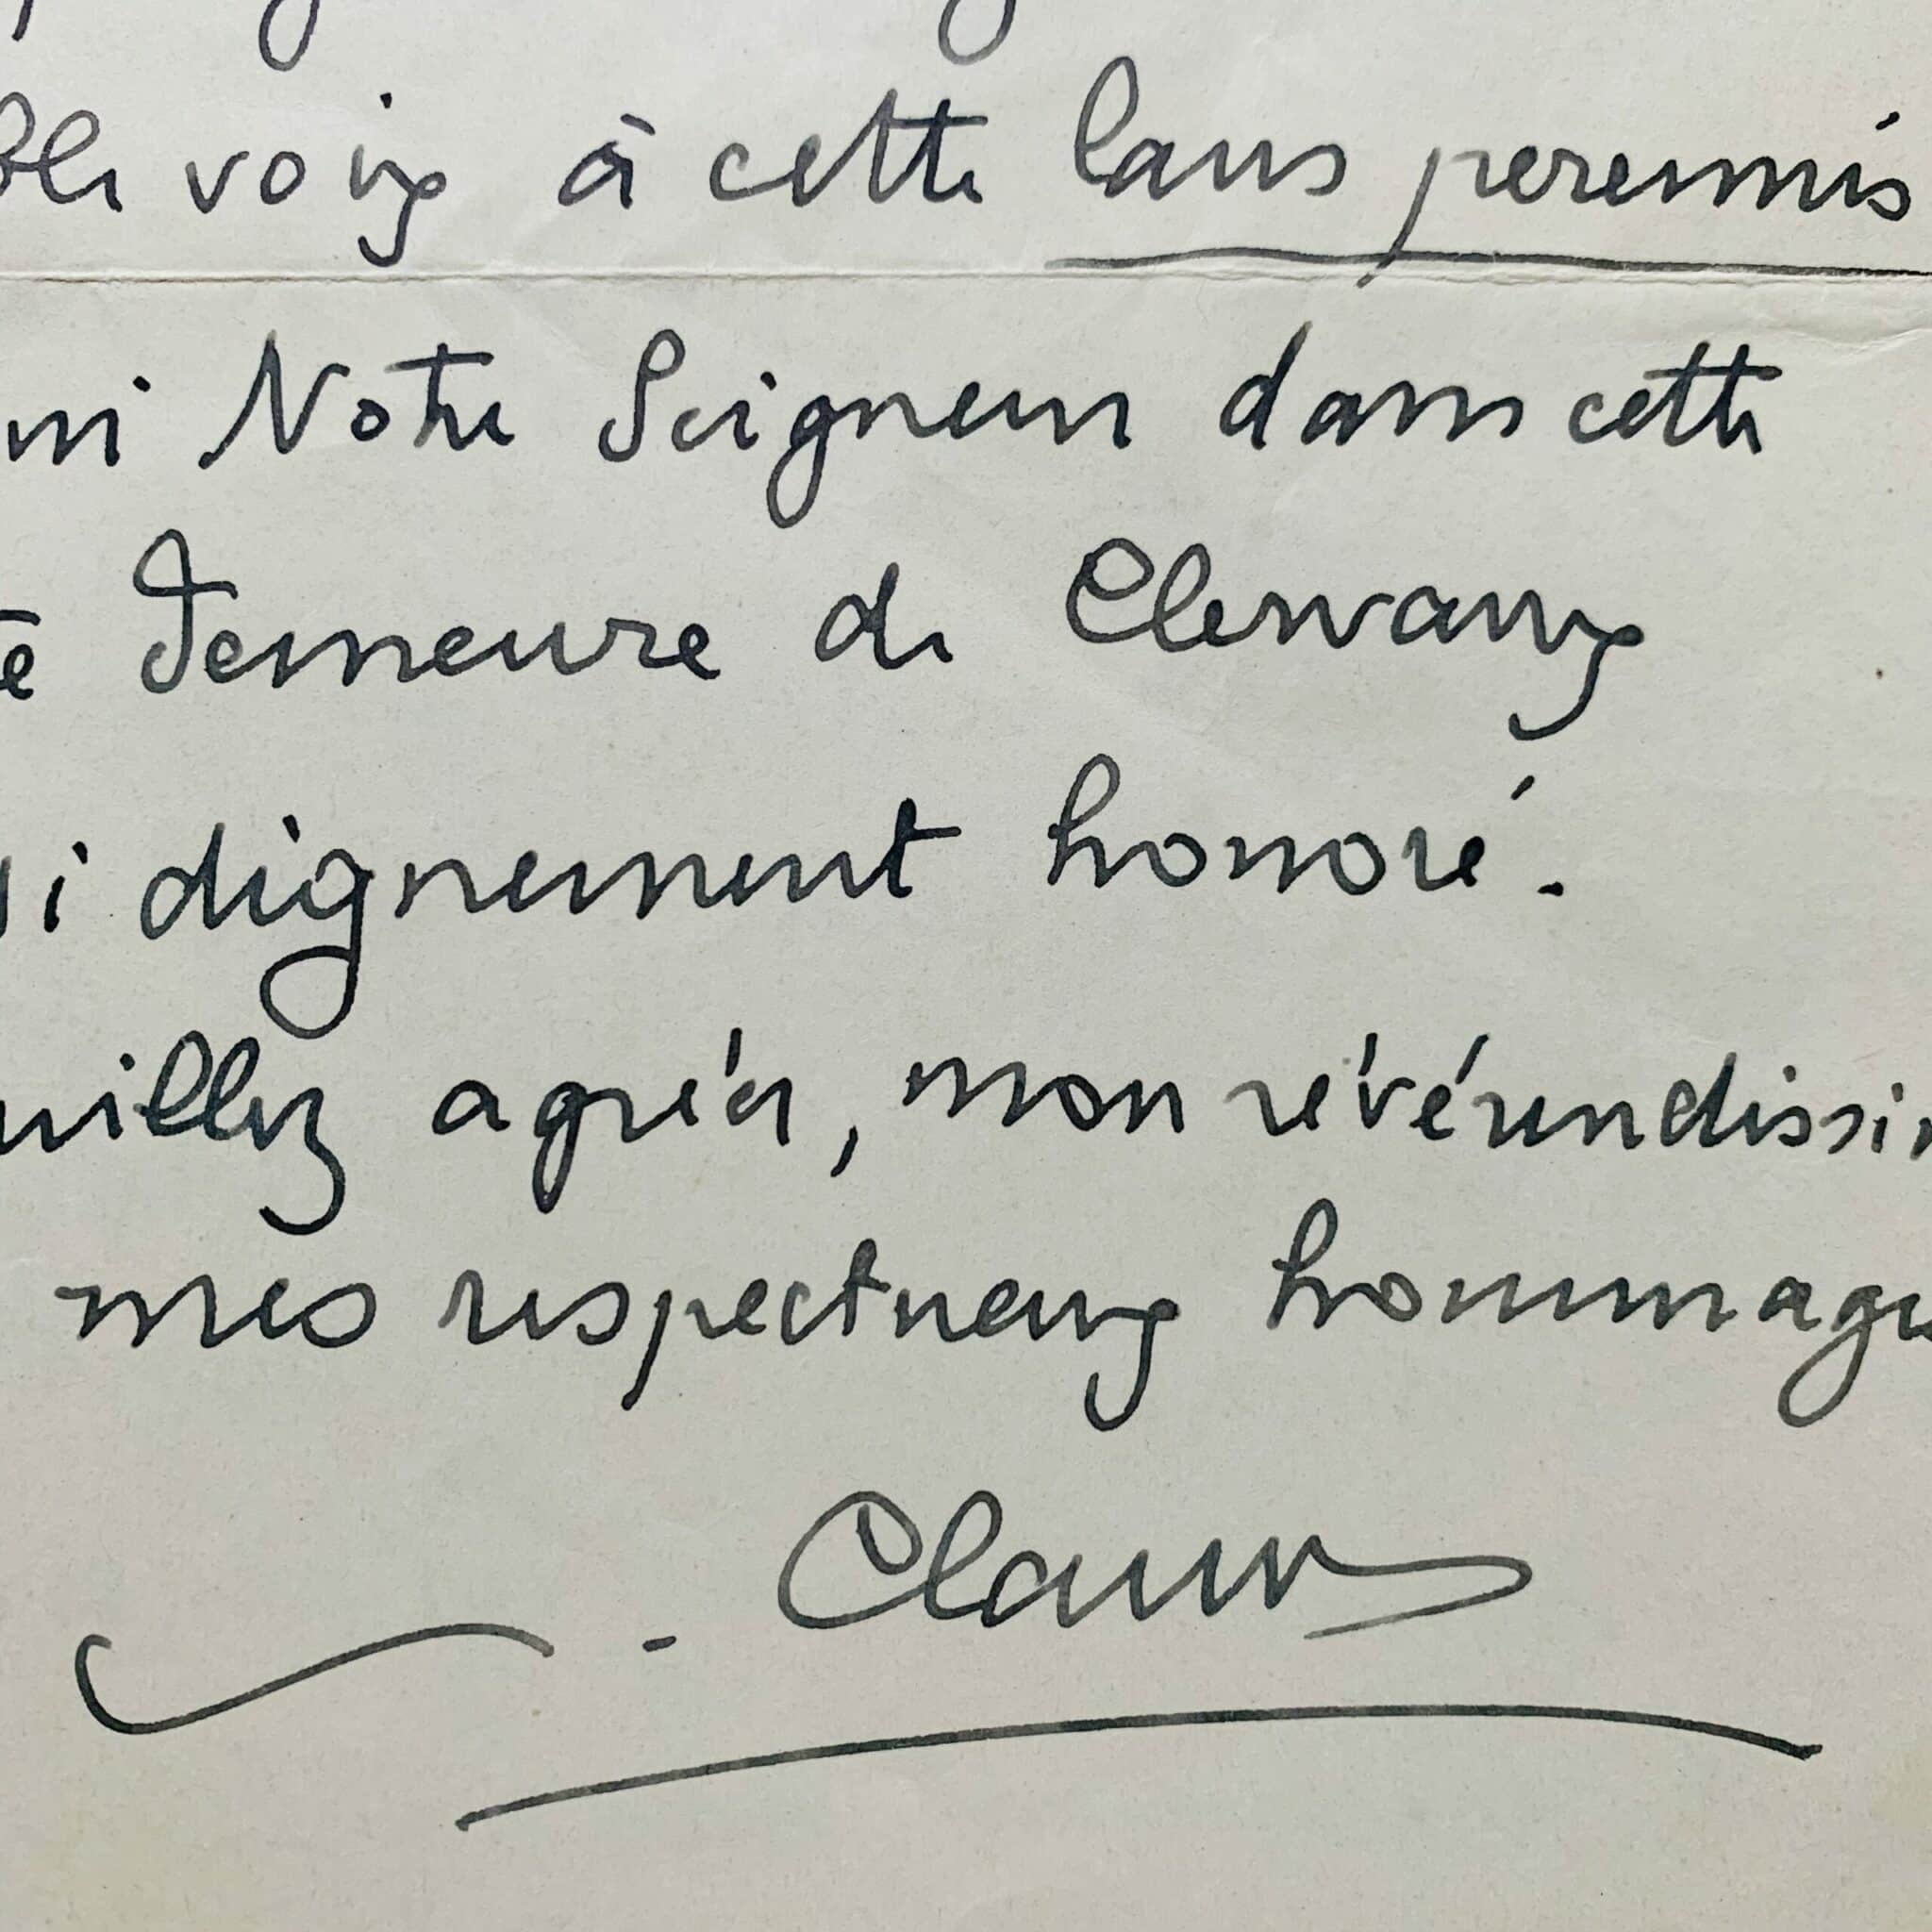 voix à cette laus perennis
Notre Seigneur dans cette
demeure de Clervaux
si dignement honoré.
uillez agréer, mon révérendissi
mes respectueux hommages